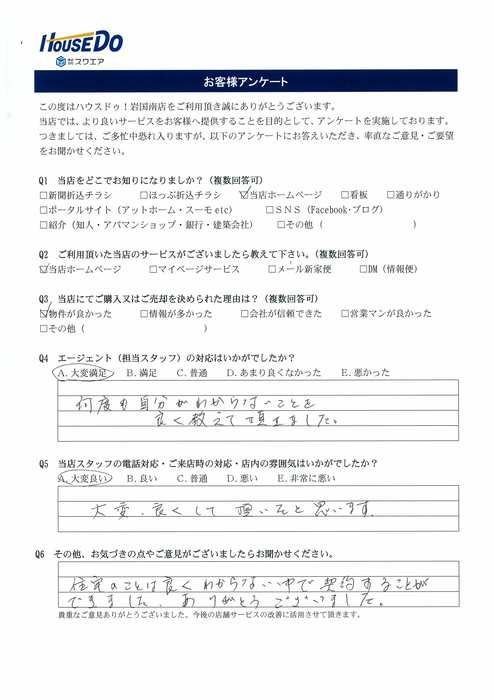 HOUSEDO
株式会社スクエア
お客様アンケート
この度はハウスドゥ！岩国南店をご利用頂き誠にありがとうございます。
当店では、より良いサービスをお客様へ提供することを目的として、アンケートを実施しております。
つきましては、ご多忙中恐れ入りますが、以下のアンケートにお答えいただき、率直なご意見・ご要望
をお聞かせください。
Q1 当店をどこでお知りになりましか？（複数回答可）
□新聞折込チラシ □ほっぷ折込チラシ ☑当店ホームページ □看板 □通りがかり
□ポータルサイト（アットホーム・スーモ etc） □ＳＮＳ（Facebook・ブログ）
□紹介（知人・アパマンショップ・銀行・建築会社） □その他（ ）
Q2 ご利用頂いた当店のサービスがございましたら教えて下さい。（複数回答可）
☑当店ホームページ □マイページサービス □メール新家便 □DM（情報便）
Q3 当店にてご購入又はご売却を決められた理由は？（複数回答可）
☑物件が良かった □情報が多かった □会社が信頼できた □営業マンが良かった
□その他（ ）
Q4 エージェント（担当スタッフ）の対応はいかがでしたか？
A. 大変満足 B. 満足 C. 普通 D. あまり良くなかった E. 悪かった
何度も自分がわからないことを
良く教えて頂きました。
Q5 当店スタッフの電話対応・ご来店時の対応・店内の雰囲気はいかがでしたか？
A. 大変良い B. 良い C. 普通 D. 悪い E. 非常に悪い
大変、良くして と思います
Q6 その他、お気づきの点やご意見がございましたらお聞かせください。
住宅のことは良くわからない中で契約することが
できました。ありがとうございました。
貴重なご意見ありがとうございました。今後の店舗サービスの改善に活用させて頂きます。